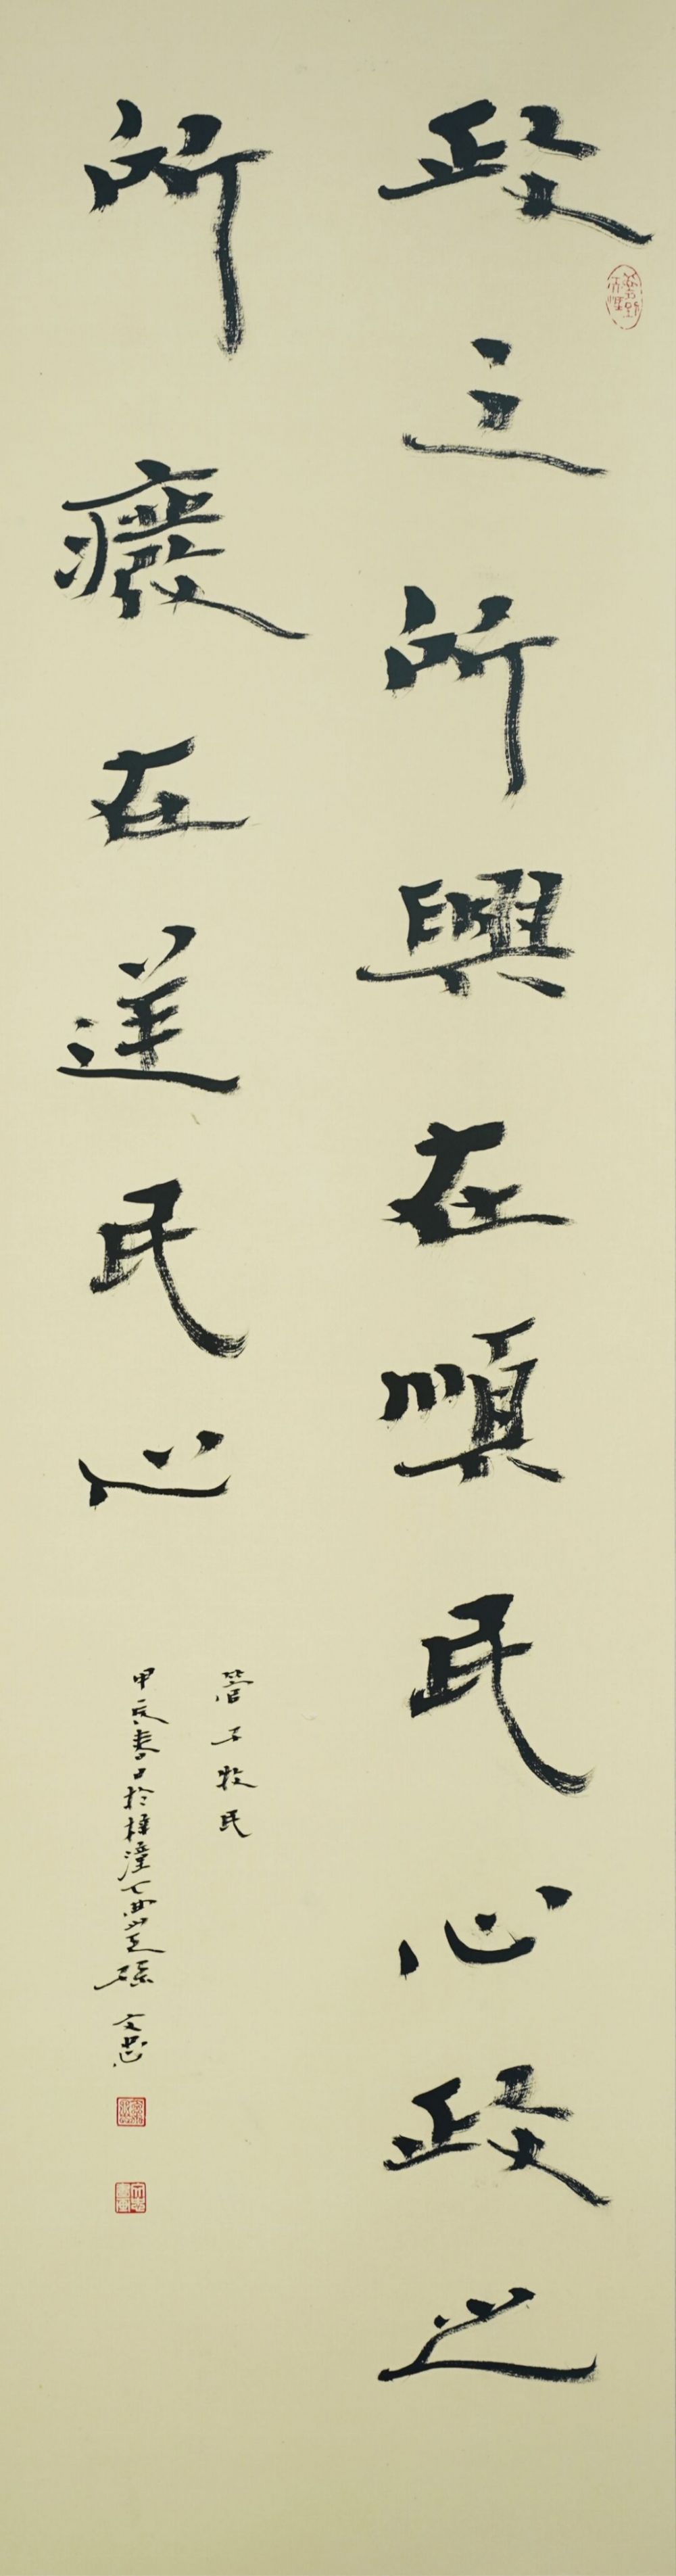 政之所興在順民心政之
所癈在逆民心
管子牧民
甲辰春日於梓潼七曲山麓孫文忠